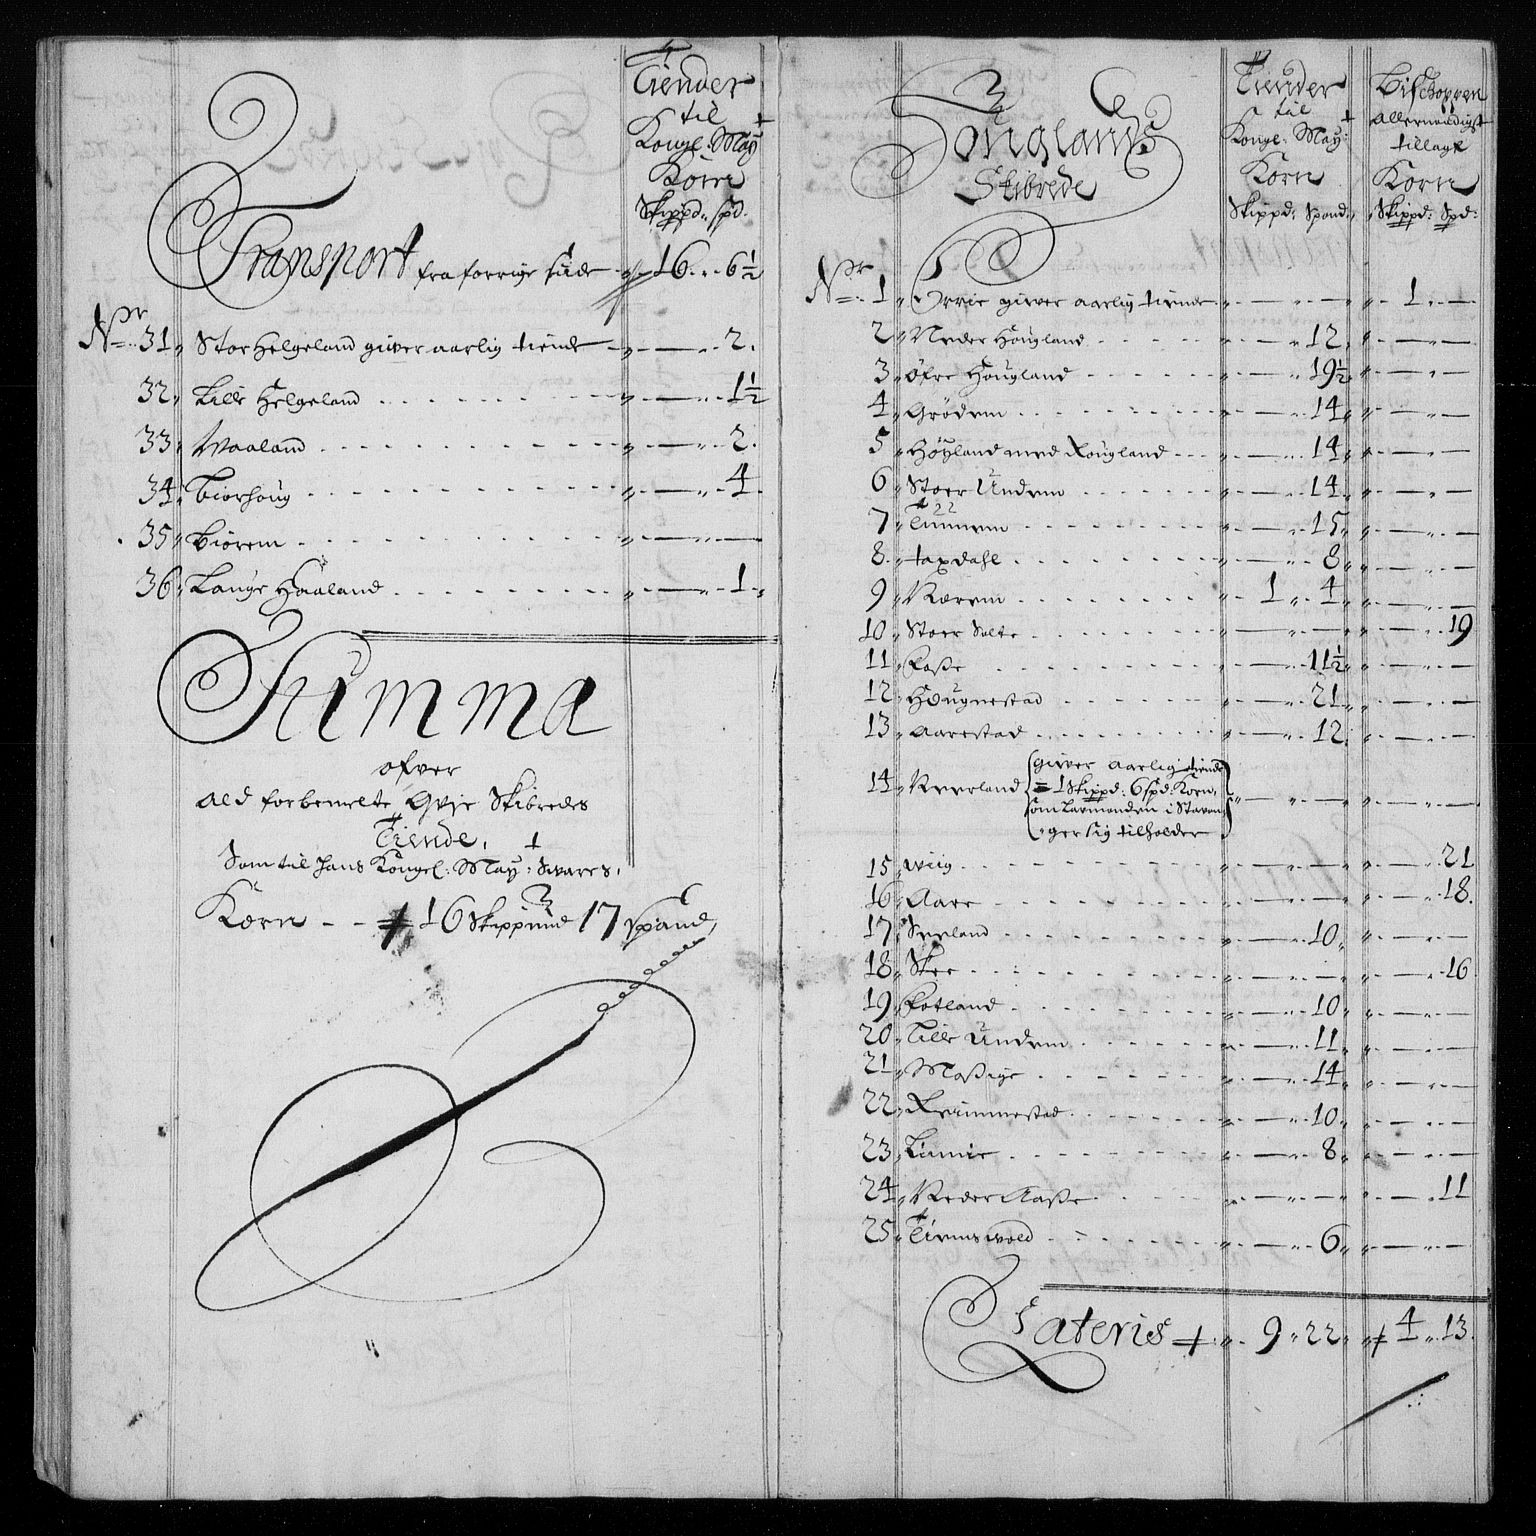 Tiender
til
Kongl: May:
Korn
Skippd: spd.
Transport fra forrige side 16 6½
Nr 31 Stor Helgeland giver aarlig tiende 2
32 Lille Helgeland 1½
33 Waaland 2
34 Biorhoug 4
35 Biorem
36 Lange Haaland 1
Summa
ofver
ald forbemelte Gvje Skibredes
Tiende,
Som til hans Kongel: May: Svares,
Korn 16 Skippund 17 Spand,
Jonglands
Skibrede
Tiender
til
Kongl: May:
Korn
Skippd: Spand:
Bischoppen
allernaadigst
tillagt
Korn
Skippd: Spd:
Nr 1 Orrie giver aarlig tiende 1
2 Neder Hougland 12
3 Øfre Hougland 19½
4 Grødem 14
5 Høyland med Rougland 14
6 Stoer Undem 14
7 Tunnem 15
8 Taxdahl 8
9 Nærem 1 4
10 Stoer Salte 19
11 Laße 11½
12 Hougnestad 21
13 Aarestad 12
14 Reveland giver aarlig tiende
1 Skippd: 6 spd: Korn,
som Lavmanden i Stavan
ger sig tilholder
15 Wiig 21
16 Aare 18
17 Sveland 10
18 Skee 16
19 Lotland 10
20 Lille Undem 11
21 Maßige 14
22 Kvammestad 10
23 Linnie 8
24 Neder Aaße 11
25 Tiemsvold 6
Lateris 9 22 4 13